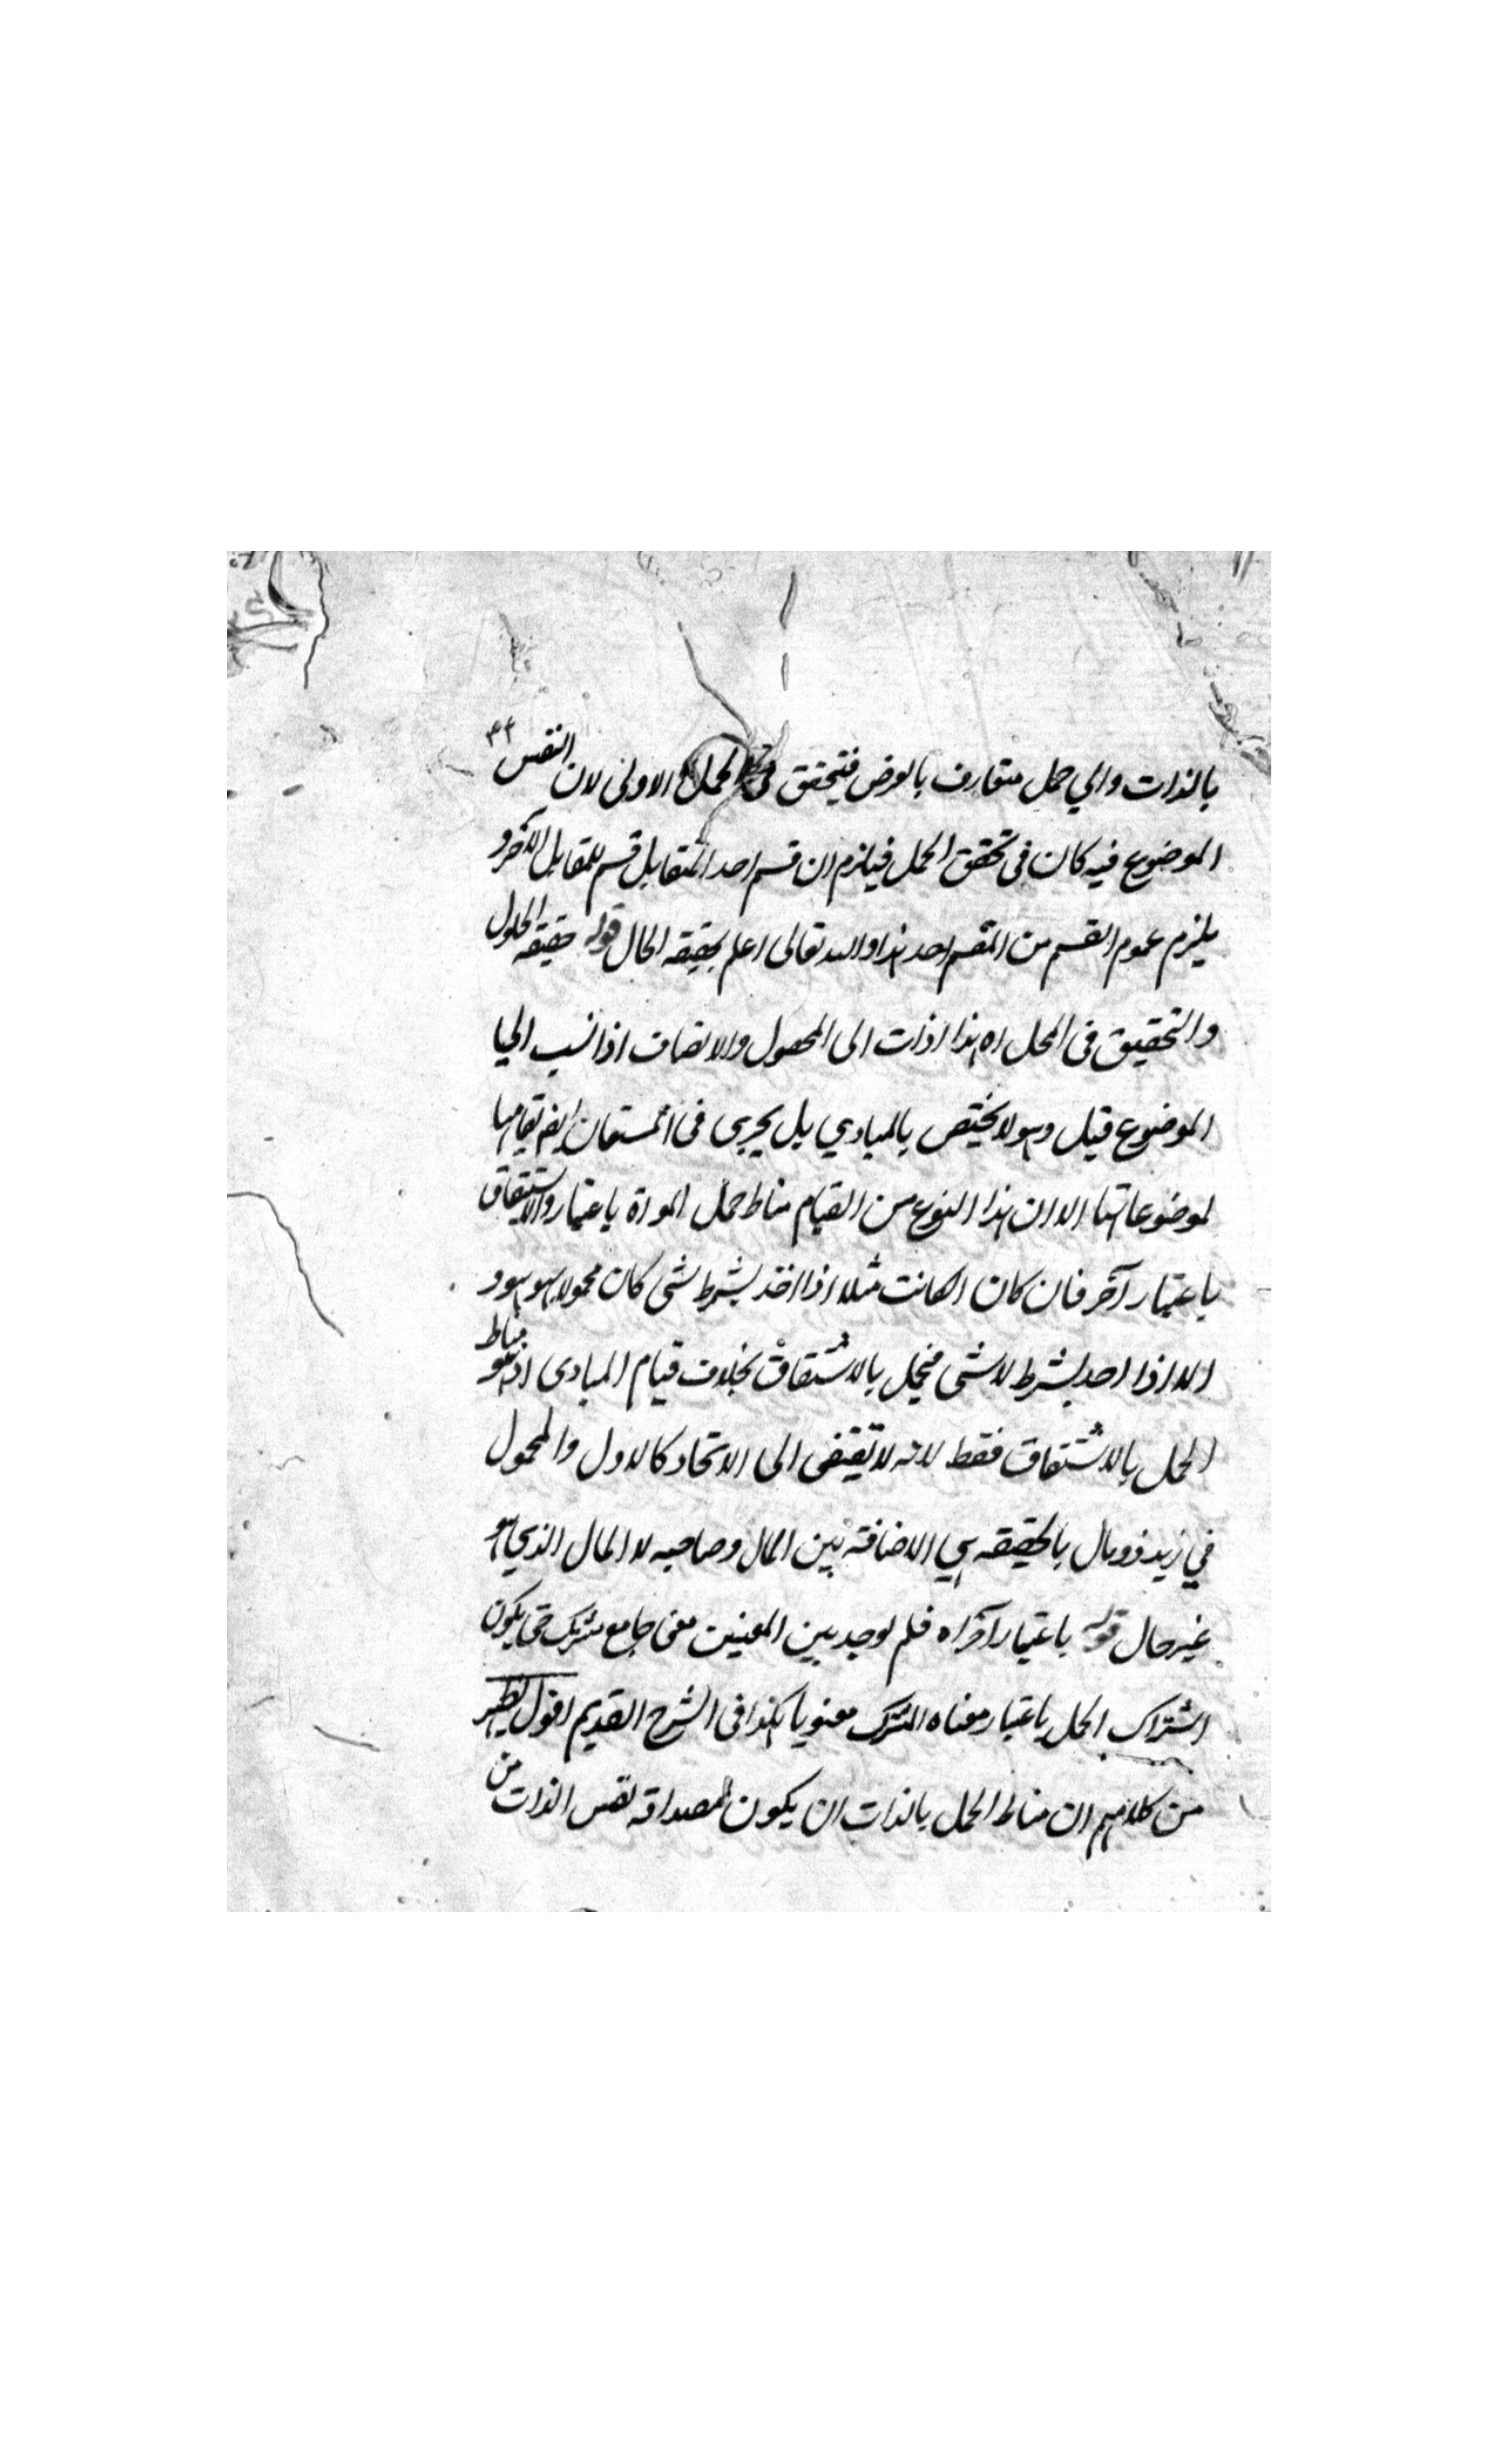 ٤٤
بالذات والى حمل متعارف بالعرض فيتحقق فى الحمل الاولى لان النفس
الموضوع فيه كان فى تحقق الحمل فيلزم ان قسم احد المتقابل قسم للمقابل الآخر و
يلزم عموم القسم من المقسم احد هذا والله تعالى اعلم بحقيقه الحال قوله حقيقه الحلول
والتحقيق فى الحمل اه هذا اذات الى المحمول والاتصاف اذا نسب الى
الموضوع قيل وهو لا يختص بالمبادي بل يجرى فى المشتقات ايض لقيامها
لموضوعاتها الا ان هذا النوع من القيام مناط حمل المواة باعتبار والاشتقاق
باعتبار آخر فان كان الكاتب مثلا اذا اخذ بشرط شى كان محمولا بهو هو و
الا اذا احد بشرط لا شى فيحمل بالاشتقاق بخلاف قيام المبادى اذ هو مناط
الحمل بالاشتقاق فقط لانه لا يقتضى الى الاتحاد كالاول والمحمول
في زيد ذو مال بالحقيقه هي الاضافة بين المال وصاحبه لا المال الذي هو
غير حال قوله باعتبار آخر اه فلم يوجد بين المعنيين معنى جامع مشترك حتى يكون
اشتراك الحمل باعتبار معناه المشترك معنويا هكذا فى الشرح القديم اقول يظهر
من كلامهم ان مناط الحمل بالذات ان يكون لمصداقه نفس الذات من